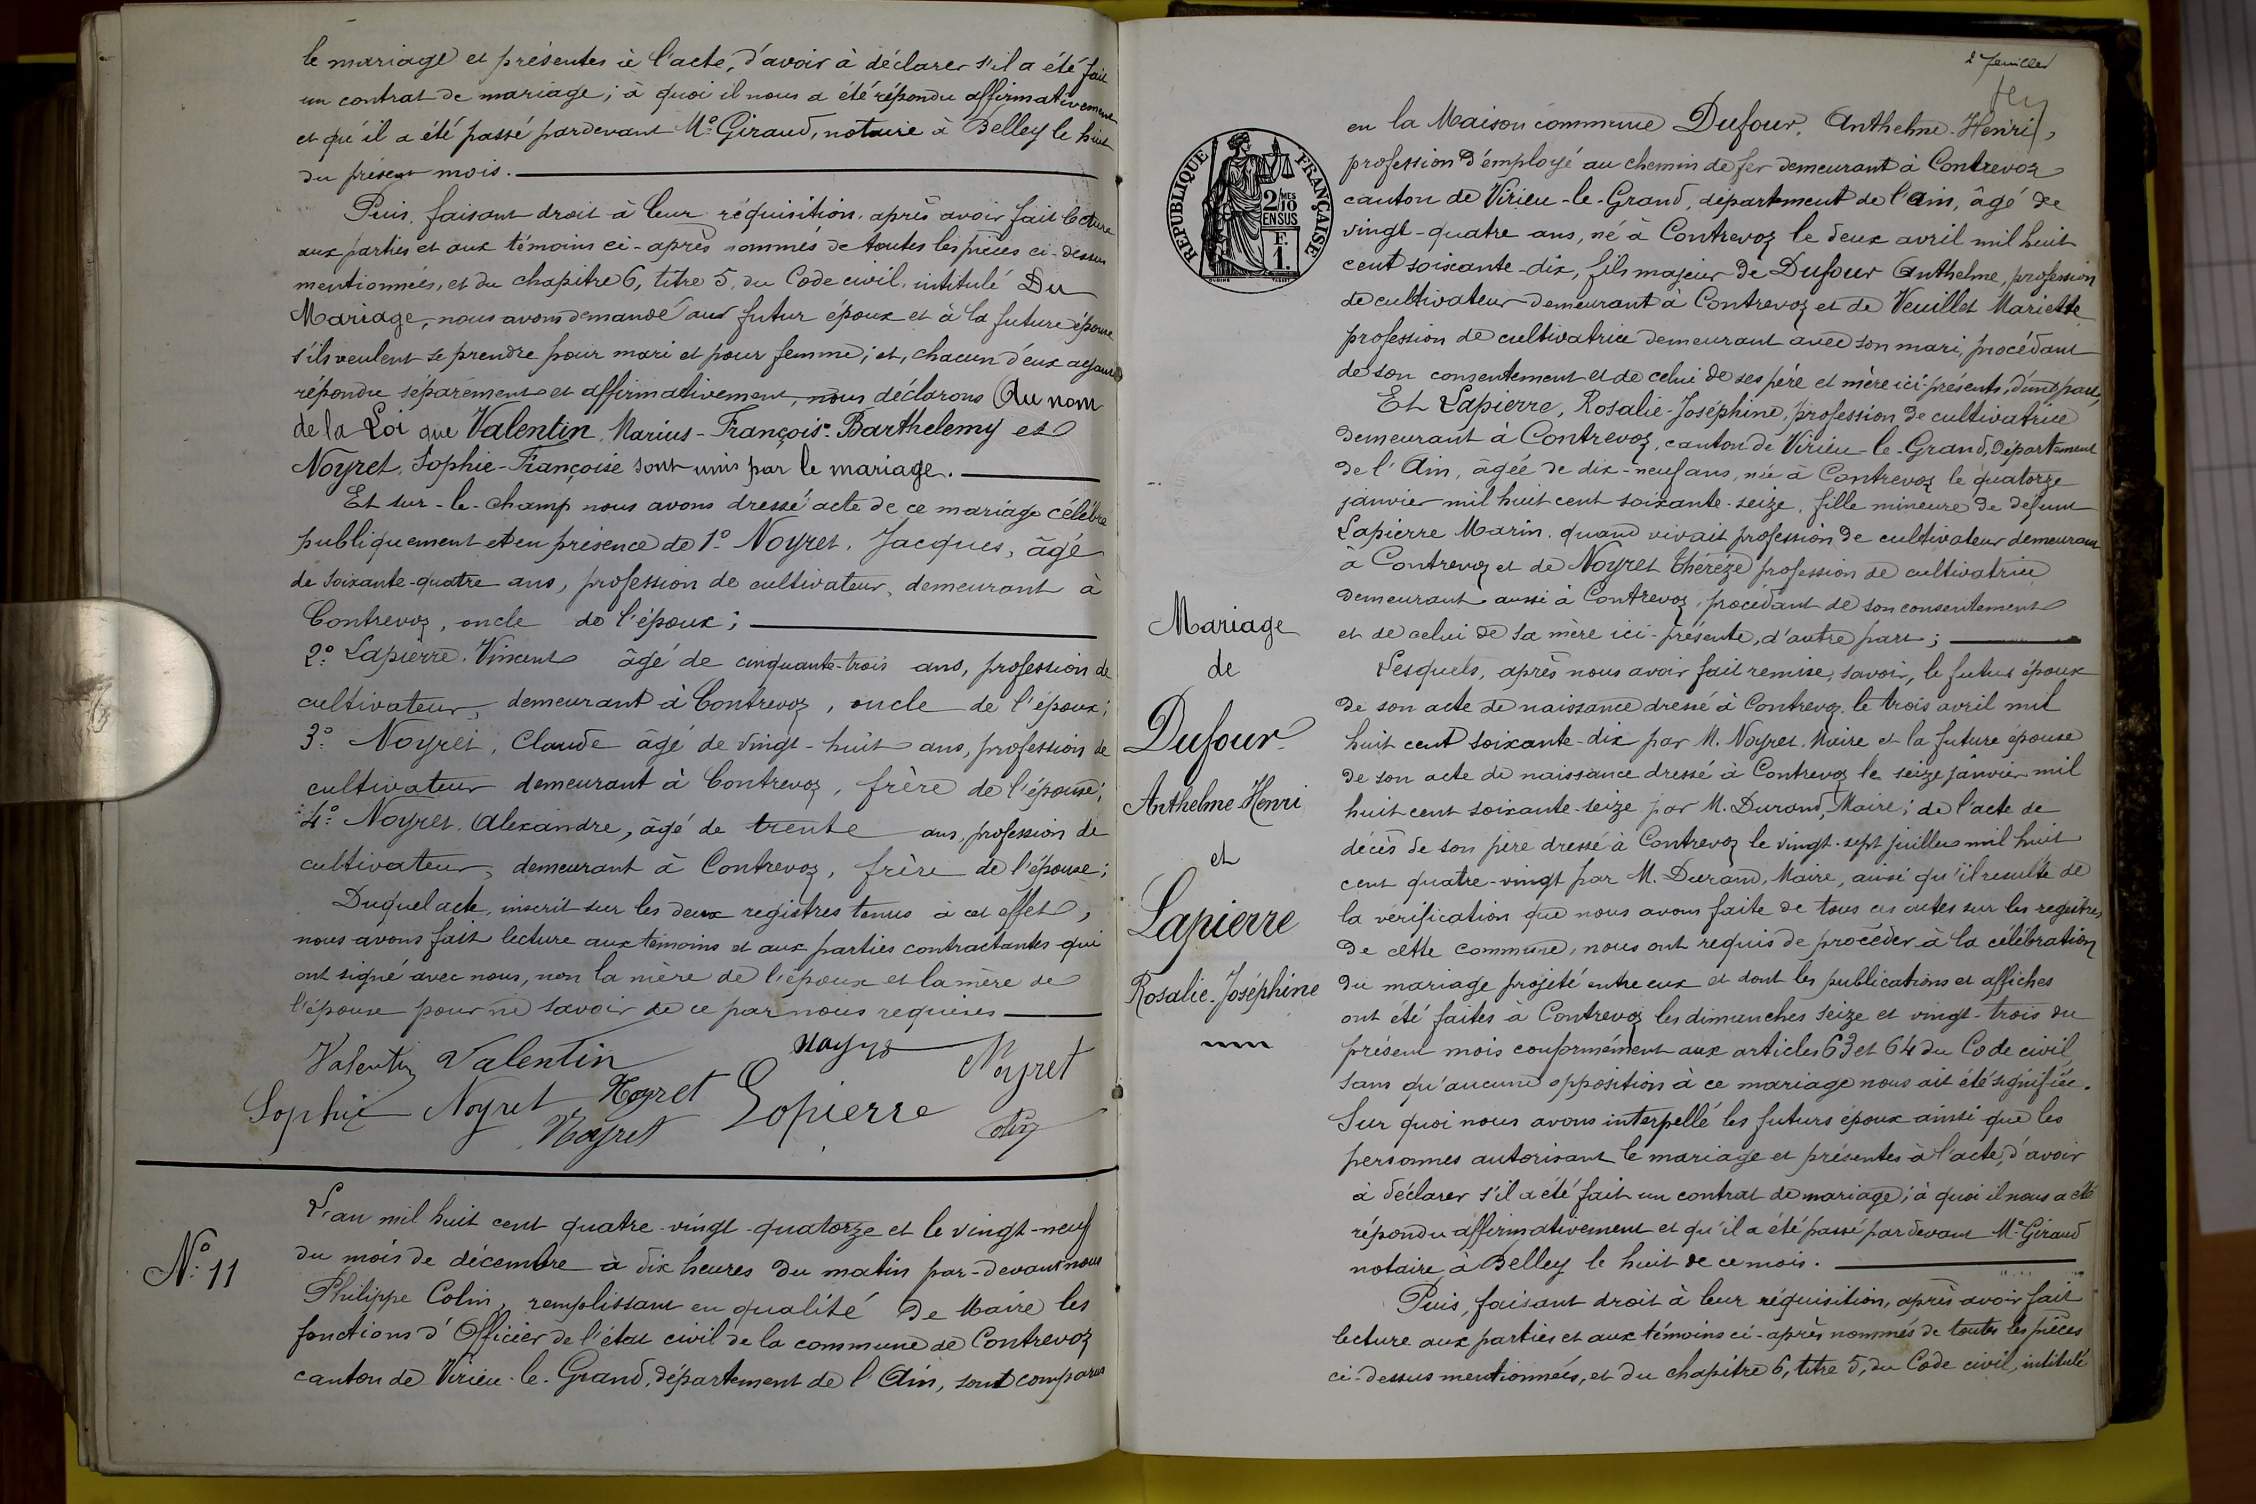 le mariage et présentes à l'acte, d'avoir à déclarer s'il a été fait
un contrat de mariage; à quoi il nous a été répondu affirmativement
et qu'il a été passé pardevant Me Giraud, notaire à Belley le huit
du présent mois.
Puis, faisant droit à leur réquisition, après avoir fait lecture
aux parties et aux témoins ci-après nommés de toutes les pièces ci-dessus
mentionnées, et du chapitre 6, titre 5, du Code civil, intitulé Du
Mariage, nous avons demandé aux futur époux et à la future épouse
s'ils veulent se prendre pour mari et pour femme; et, chacun d'eux ayant
répondu séparément et affirmativement, nous déclarons Au nom
de la Loi que Valentin, Marius-François-Barthelemy et
Noyret, Sophie-Françoise sont unis par le mariage.
Et sur-le-champ nous avons dressé acte de ce mariage célébré
publiquement et en présence de 1º Noyret, Jacques, âgé
de soixante-quatre ans, profession de cultivateur, demeurant à
Contrevoz, oncle de l'époux;
2º Lapierre, Vincent âgé de cinquante-trois ans, profession de
cultivateur, demeurant à Contrevoz, oncle de l'époux;
3º Noyret, Claude âgé de vingt-huit ans, profession de
cultivateur demeurant à Contrevoz, frère de l'épouse;
4º Noyret, Alexandre, âgé de trente ans, profession de
cultivateur, demeurant à Contrevoz, frère de l'épouse;
Duquel acte, inscrit sur les deux registres tenus à cet effet,
nous avons fait lecture aux témoins et aux parties contractantes qui
ont signé avec nous, non la mère de l'époux et la mère de
l'épouse pour ne savoir de ce par nous requises
Valentin Valentin Noyret
Sophie Noyret Noyret Lapierre
Noyret
Nº 11
L'an mil huit cent quatre-vingt-quatorze et le vingt-neuf
du mois de décembre à dix heures du matin par-devant nous
Philippe Colin, remplissant en qualité de Maire les
fonctions d'Officier de l'état civil de la commune de Contrevoz
canton de Virieu-le-Grand, département de l'Ain, sont comparus
2e feuillet
REPUBLIQUE FRANÇAISE
2/10MES
EN SUS
F.
1.
en la Maison commune Dufour, Anthelme-Henri,
profession d'employé au chemin de fer demeurant à Contrevoz
canton de Virieu-le-Grand, département de l'Ain, âgé de
vingt-quatre ans, né à Contrevoz le deux avril mil huit
cent soixante-dix, fils majeur de Dufour Anthelme, profession
de cultivateur demeurant à Contrevoz et de Veuillet Mariette
profession de cultivatrice demeurant avec son mari, procédant
de son consentement et de celui de ses père et mère ici présents, d'une part,
Et Lapierre, Rosalie-Joséphine, profession de cultivatrice
demeurant à Contrevoz, canton de Virieu-le-Grand, département
de l'Ain, âgée de dix-neuf ans, née à Contrevoz le quatorze
janvier mil huit cent soixante-seize, fille mineure de defunt
Lapierre Marin, quand vivait profession de cultivateur demeurant
à Contrevoz et de Noyret Thérèze profession de cultivatrice
demeurant aussi à Contrevoz, procédant de son consentement
et de celui de sa mère ici-présente, d'autre part;
Lesquels, après nous avoir fait remise, savoir, le futur époux
de son acte de naissance dressé à Contrevoz le trois avril mil
huit cent soixante-dix par M. Noyret, Maire et la future épouse
de son acte de naissance dressé à Contrevoz le seize janvier mil
huit cent soixante-seize par M. Durand, Maire; de l'acte de
décès de son père dressé à Contrevoz le vingt-sept juillet mil huit
cent quatre-vingt par M. Durand, Maire, ainsi qu'il resulte de
la vérification que nous avons faite de tous ces actes sur les registres
de cette commune, nous ont requis de procéder à la célébration
du mariage projeté entre eux et dont les publications et affiches
ont été faites à Contrevoz les dimanches seize et vingt-trois du
présent mois conformément aux articles 63 et 64 du Code civil,
sans qu'aucune opposition à ce mariage nous ait été signifiée.
Sur quoi nous avons interpellé les futurs époux ainsi que les
personnes autorisant le mariage et présentes à l'acte, d'avoir
à déclarer s'il a été fait un contrat de mariage; à quoi il nous a été
répondu affirmativement et qu'il a été passé pardevant Me Giraud
notaire à Belley le huit de ce mois.
Puis, faisant droit à leur réquisition, après avoir fait
lecture aux parties et aux témoins ci-après nommés de toutes les pièces
ci-dessus mentionnées, et du chapitre 6, titre 5, du Code civil, intitulé
Mariage
de
Dufour
Anthelme Henri
et
Lapierre
Rosalie-Joséphine